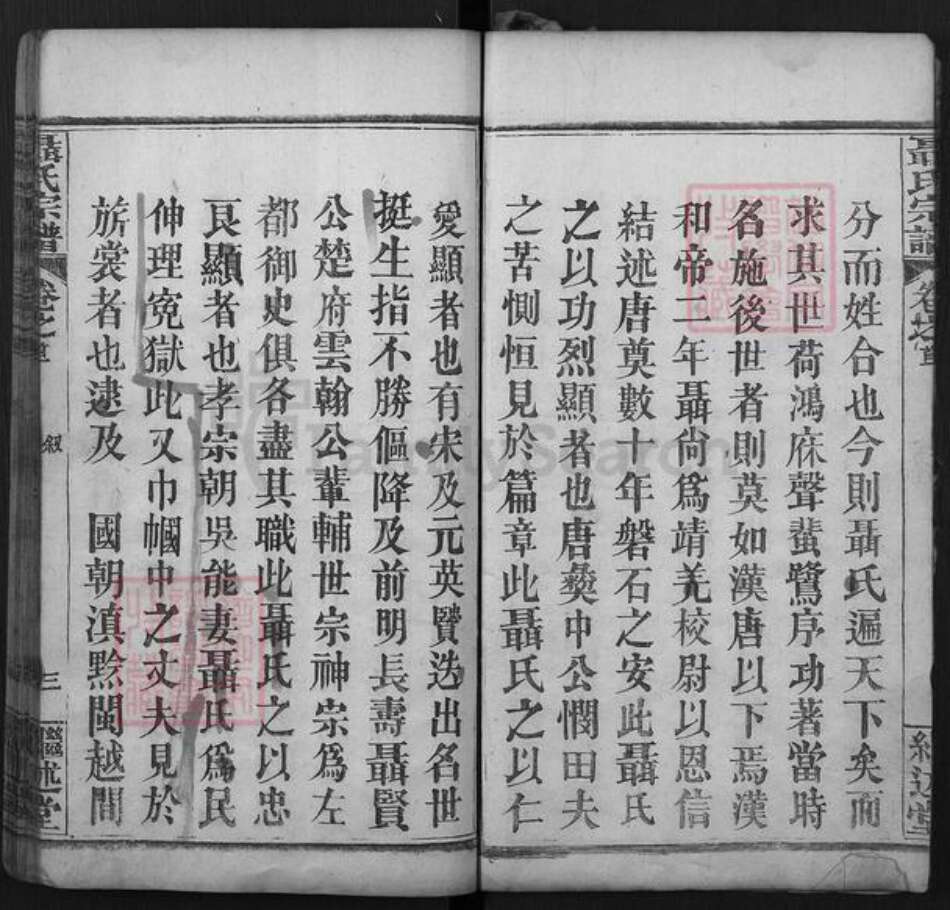 聶氏宗譜 卷之首
分而姓合也今則聶氏遍天下矣而
求其世荷鴻庥聲蜚鷺序功著當時
名施後世者則莫如漢唐以下焉漢
和帝二年聶尚爲靖羌校尉以恩信
結述唐奠數十年磐石之安此聶氏
之以功烈顯者也唐彜中公憫田夫
之苦惻恒見於篇章此聶氏之以仁
愛顯者也有宋及元英賢迭出名世
挺生指不勝傴降及前明長壽聶賢
公楚府雲翰公輩輔世宗神宗爲左
都御史俱各盡其職此聶氏之以忠
艮顯者也孝宗朝吳能妻聶氏爲民
伸理寃獄此又巾幗中之丈夫見於
旂裳者也逮及 國朝滇黔閩越間
聶氏宗譜 卷之首 叙 三 繼述堂
FamilySearch